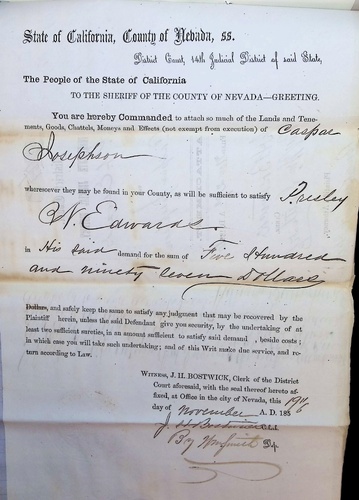 State of California, County of Nevada, ss.
District Court, 14th Judicial District of said State,
The People of the State of California
TO THE SHERIFF OF THE COUNTY OF NEVADA—GREETING.
You are hereby Commanded to attach so much of the Lands and Tene-
ments, Goods, Chattels, Moneys and Effects (not exempt from execution) of Caspar
Josephson
wheresoever they may be found in your County, as will be sufficient to satisfy Presley
W. Edwards.
in His said demand for the sum of Five Hundred
and ninety seven Dollars
Dollars, and safely keep the same to satisfy any judgment that may be recovered by the
Plaintiff herein, unless the said Defendant give you security, by the undertaking of at
least two sufficient sureties, in an amount sufficient to satisfy said demand, besides costs;
in which case you will take such undertaking; and of this Writ make due service, and re-
turn according to Law.
WITNESS, J. H. BOSTWICK, Clerk of the District
Court aforesaid, with the seal thereof hereto af-
fixed, at Office in the city of Nevada, this
day of November A. D. 185
J. H. Bostwick
By Wm Smith Dep.